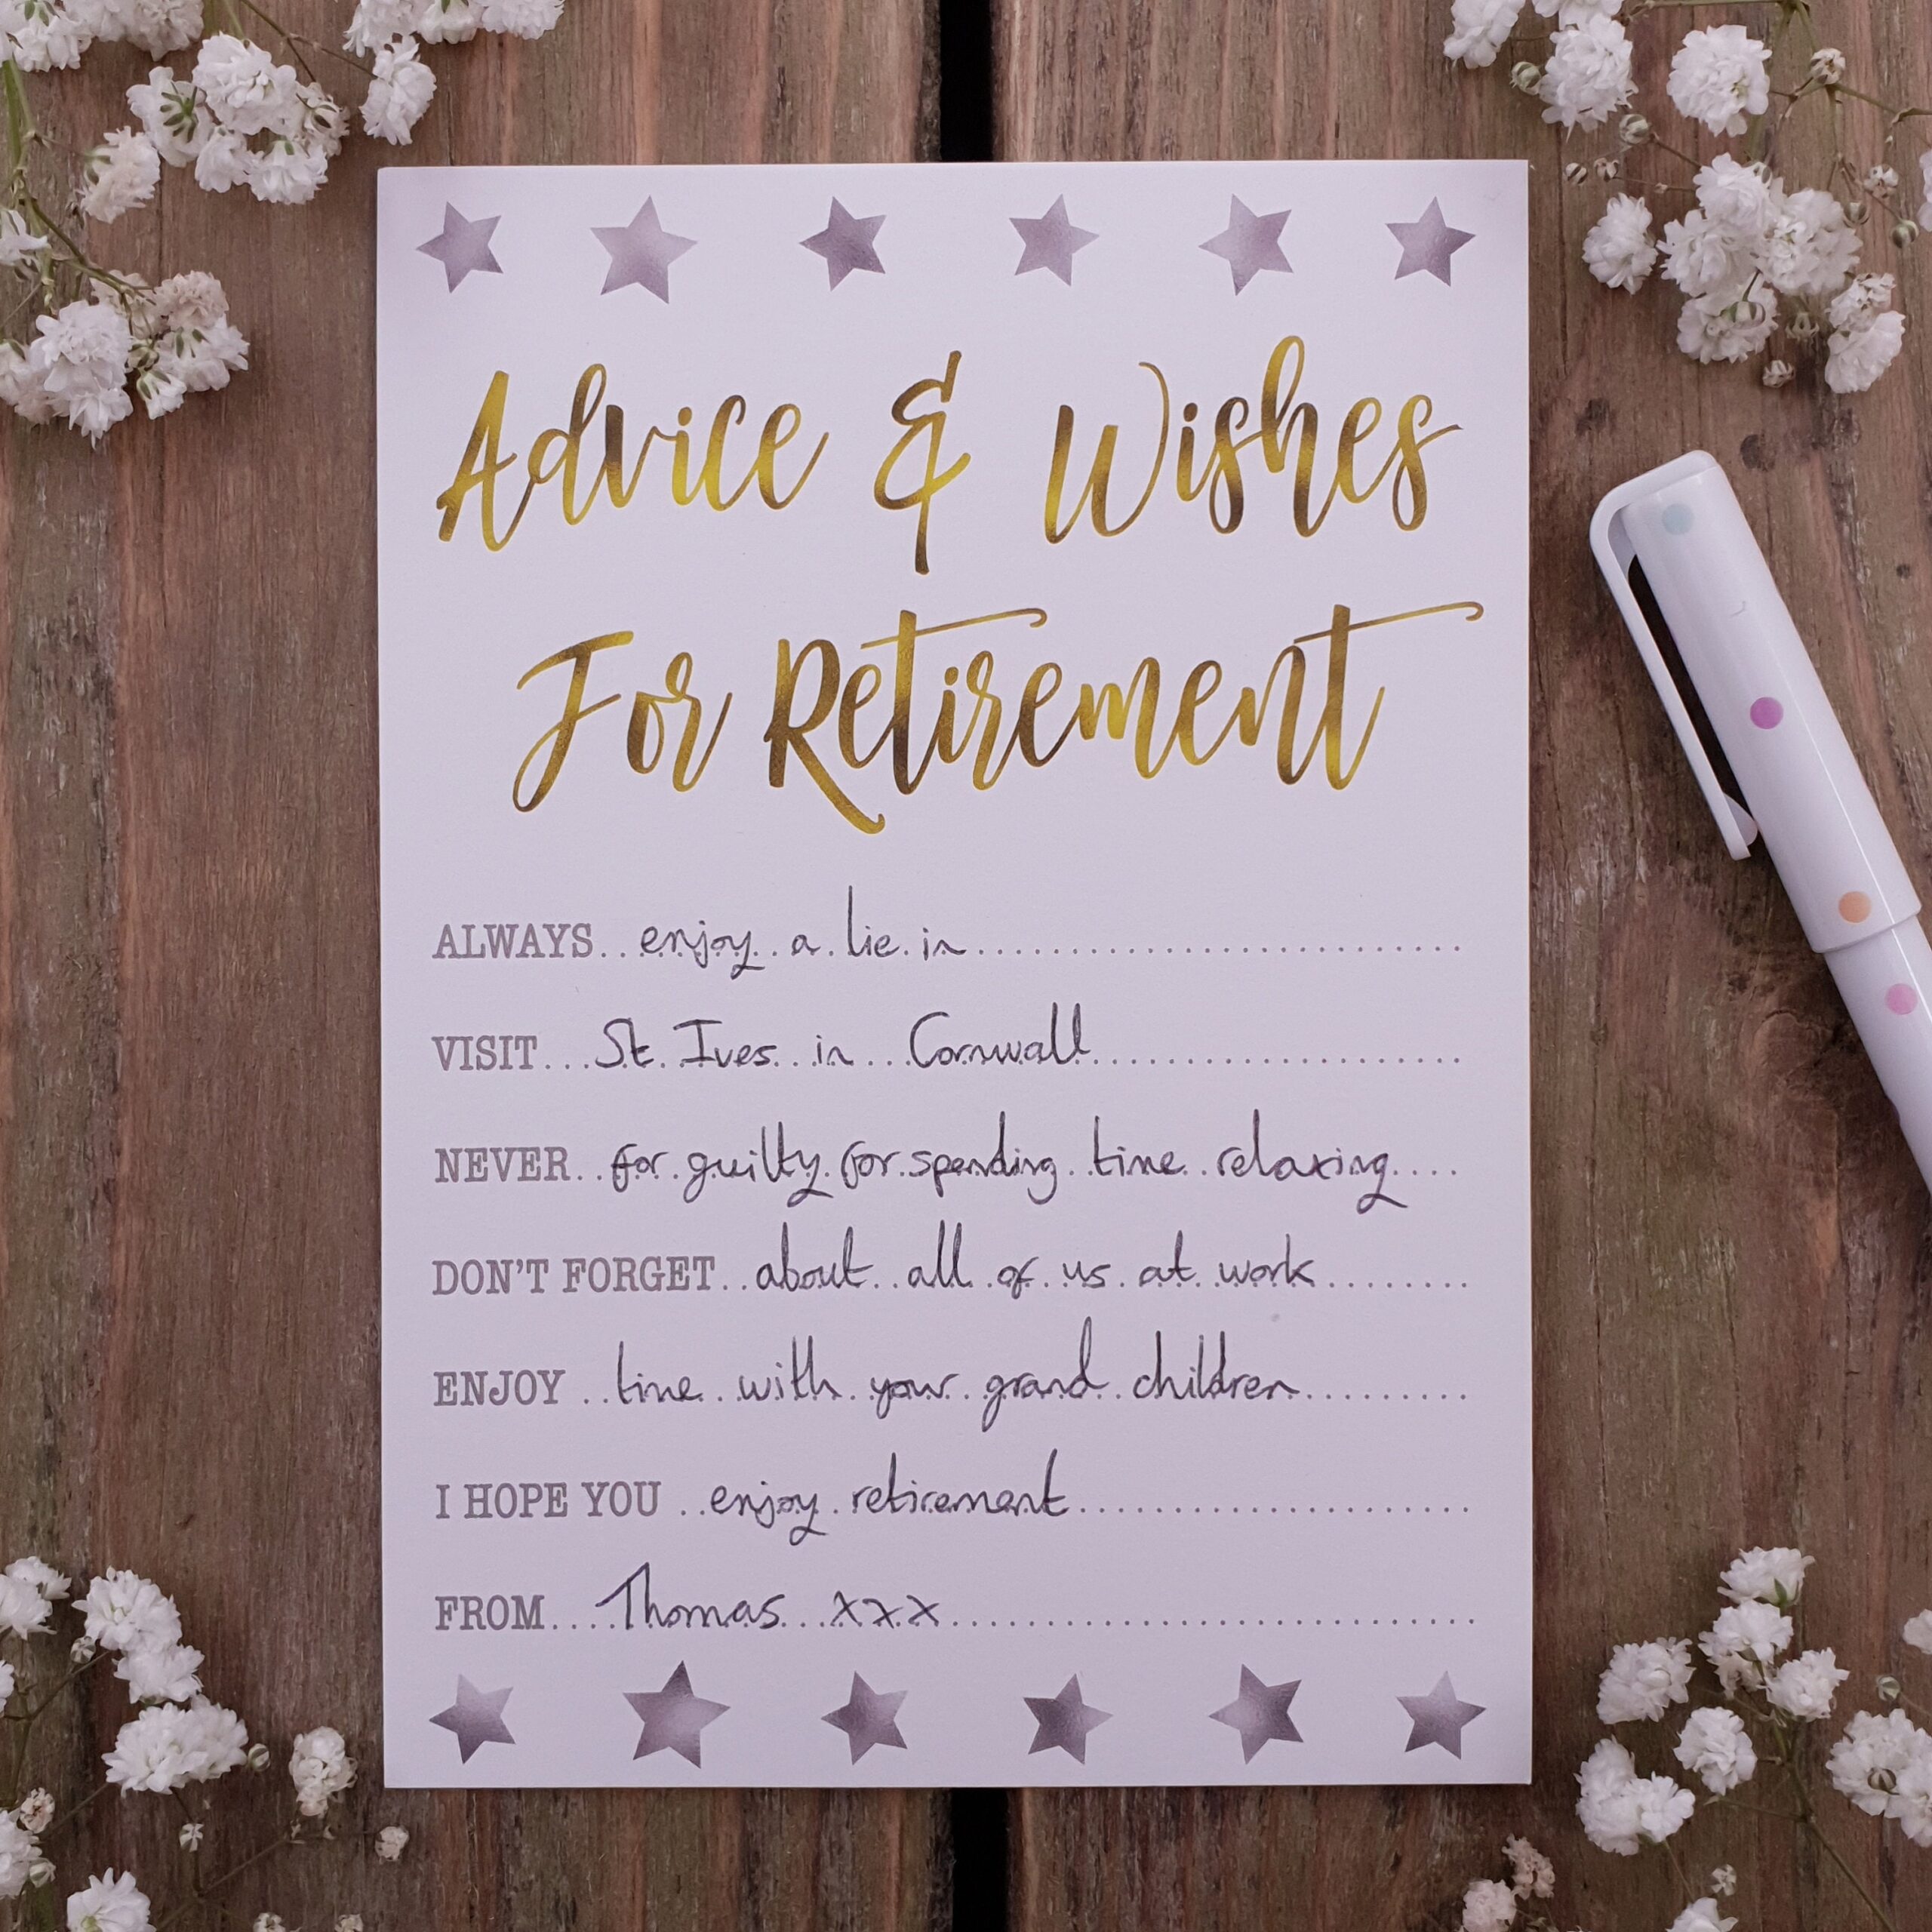 Advice & Wishes
For Retirement
ALWAYS...enjoy a lie in
VISIT...St. Ives in Cornwall
NEVER...for guilty for spending time relaxing
DON'T FORGET...about all of us at work
ENJOY...time with your grand children
I HOPE YOU...enjoy retirement
FROM....Thomas xxx